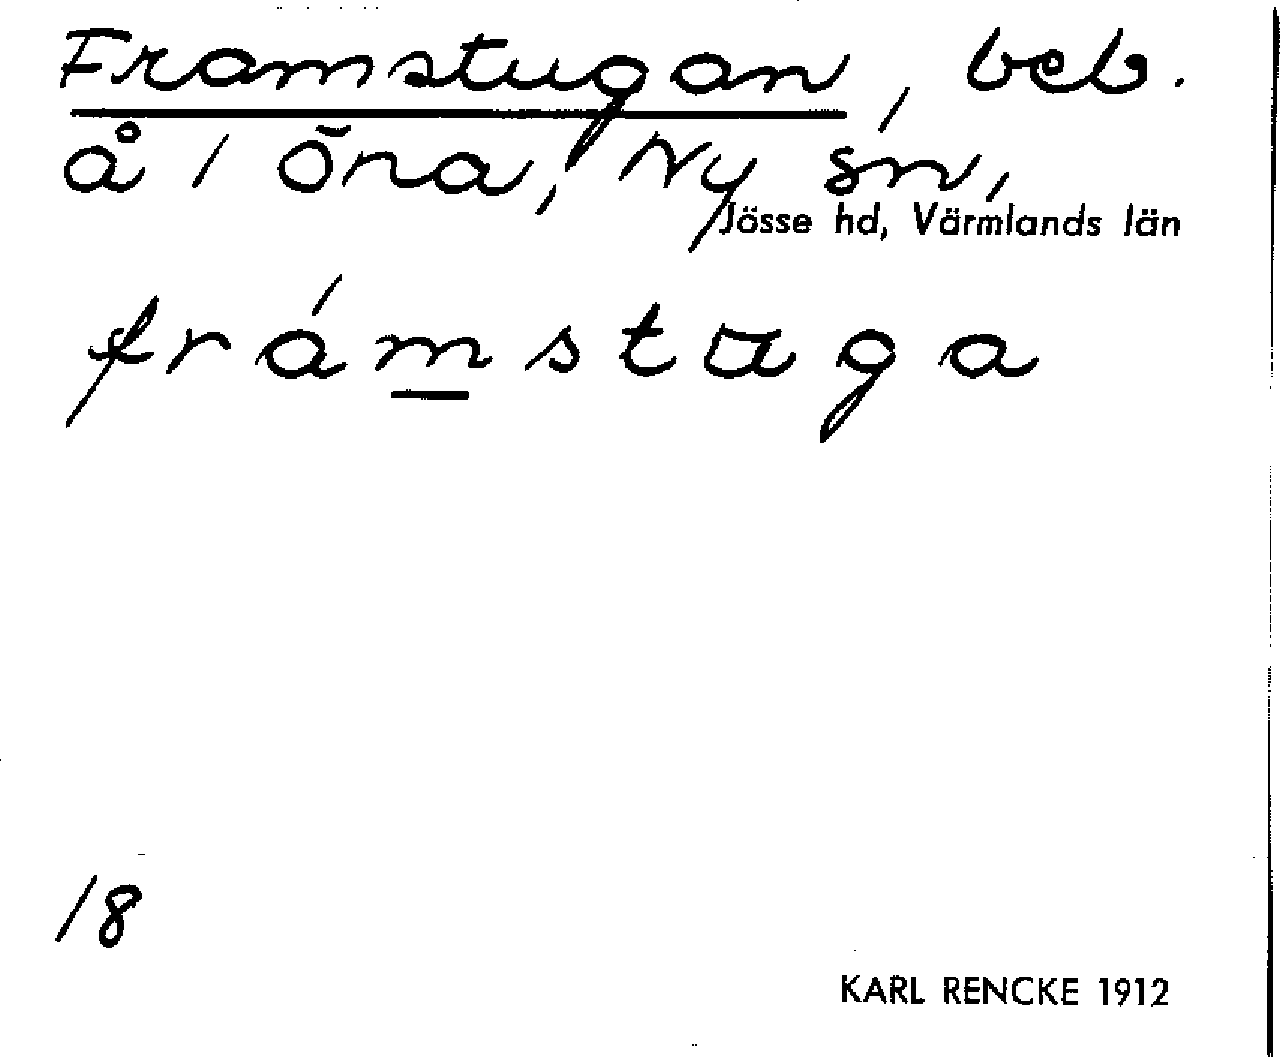 Framstugan, beb.
å 1 Öna, Ny sn,
Jösse hd, Värmlands län
frám̲staga
18
KARL RENCKE 1912